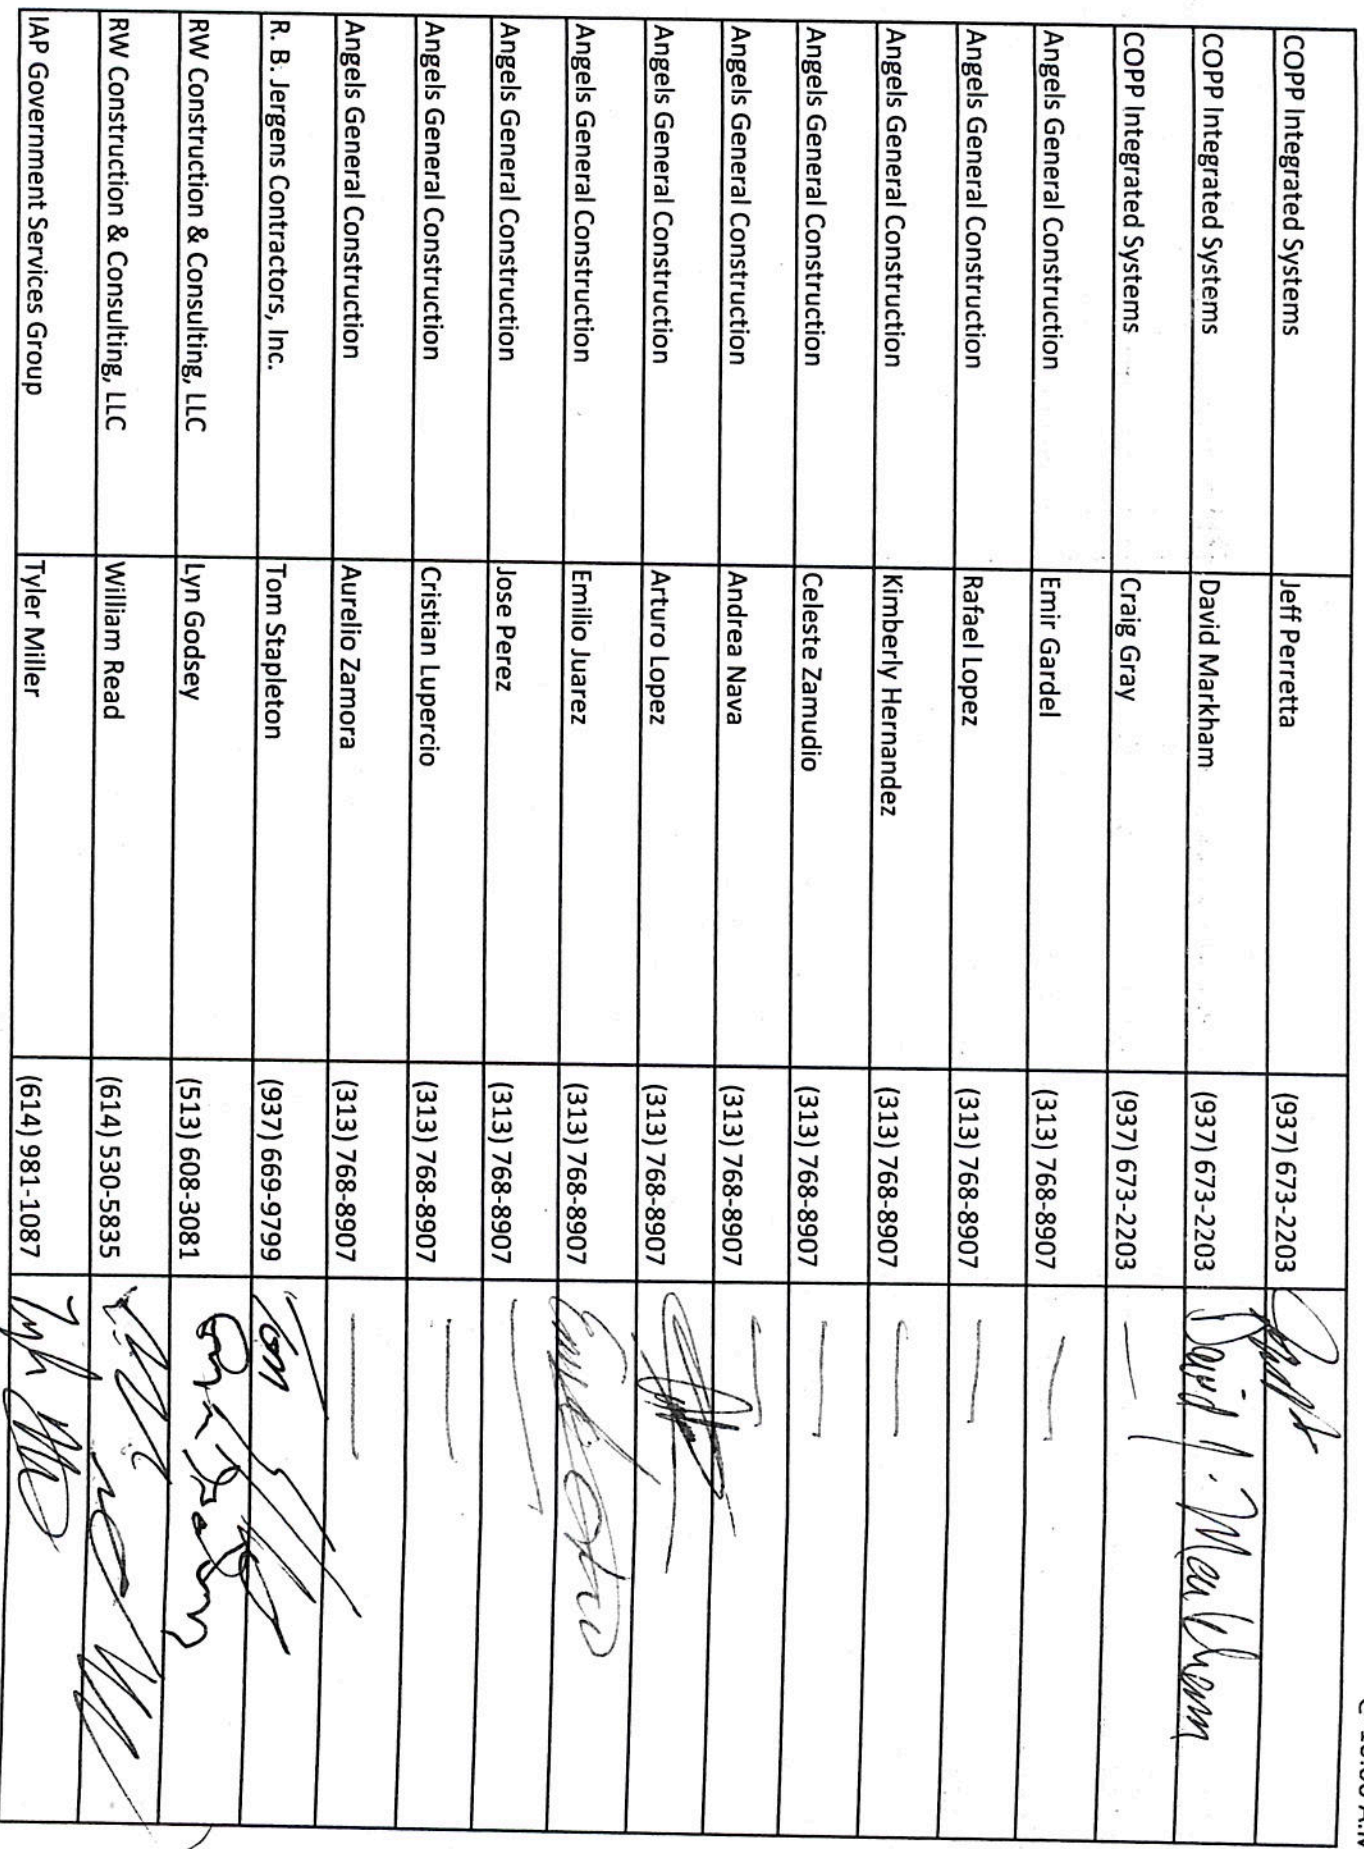 COPP Integrated Systems Jeff Perretta (937) 673-2203
COPP Integrated Systems David Markham (937) 673-2203 David J. Markham
COPP Integrated Systems Craig Gray (937) 673-2203 —
Angels General Construction Emir Gardel (313) 768-8907 —
Angels General Construction Rafael Lopez (313) 768-8907 —
Angels General Construction Kimberly Hernandez (313) 768-8907 —
Angels General Construction Celeste Zamudio (313) 768-8907 —
Angels General Construction Andrea Nava (313) 768-8907 —
Angels General Construction Arturo Lopez (313) 768-8907
Angels General Construction Emilio Juarez (313) 768-8907
Angels General Construction Jose Perez (313) 768-8907 —
Angels General Construction Cristian Lupercio (313) 768-8907 —
Angels General Construction Aurelio Zamora (313) 768-8907 —
R. B. Jergens Contractors, Inc. Tom Stapleton (937) 669-9799 Tom
RW Construction & Consulting, LLC Lyn Godsey (513) 608-3081
RW Construction & Consulting, LLC William Read (614) 530-5835
IAP Government Services Group Tyler Miller (614) 981-1087